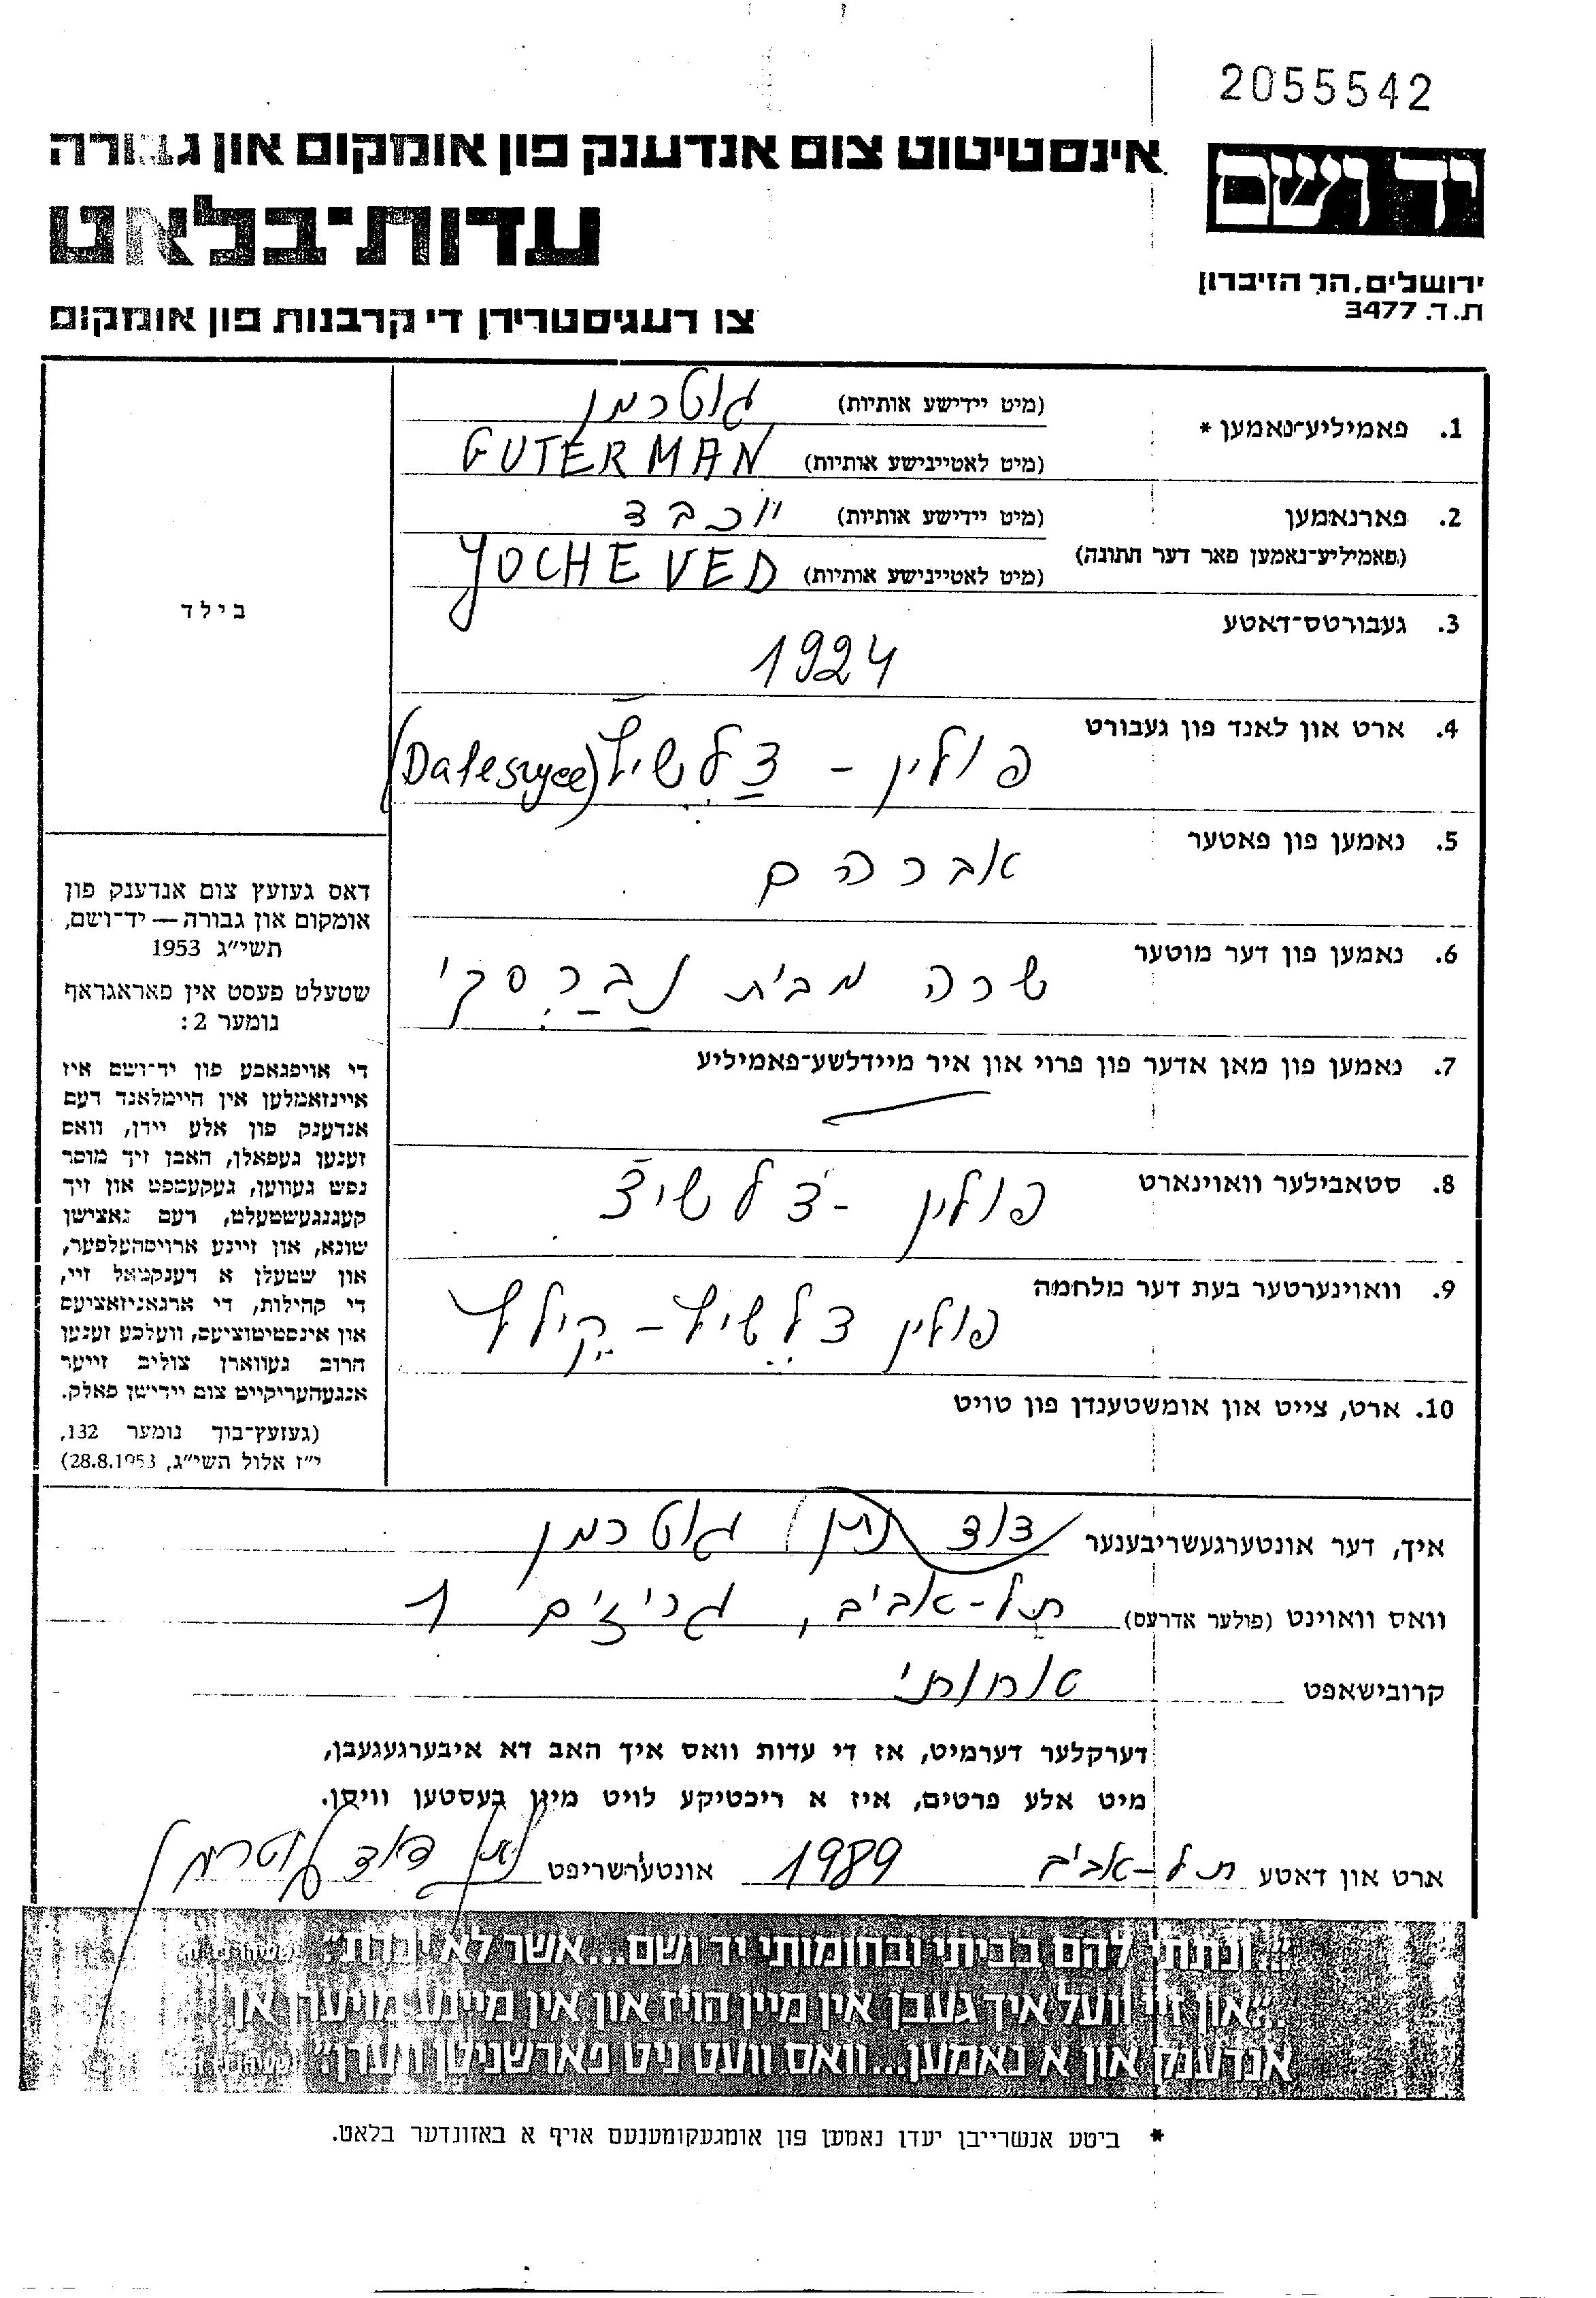 2055542
אינסטיטוט צום אנדענק פון אומקום און גבורה
יד ושם
עדות-בלאט
ירושלים, הר הזיכרון
ת.ד. 3477
צו רעגיסטרירן די קרבנות פון אומקום
1. פאמיליע-נאמען *
(מיט יידישע אותיות) גוטרמן
(מיט לאטייניشע אותיות) GUTERMAN
2. פארנאמען
(פאמיליע-נאמען פאר דער חתונה)
(מיט יידישע אותיות) יוכבד
(מיט לאטיינישע אותיות) YOCHEVED
בילד
3. געבורטס-דאטע
1924
4. ארט און לאנד פון געבורט
פולין - דלשיץ (Daleszyce)
5. נאמען פון פאטער
אברהם
6. נאמען פון דער מוטער
שרה מבית נברסקי
7. נאמען פון מאן אדער פון פרוי און איר מיידלשע-פאמיליע
8. סטאבילער וואוינארט
פולין - דלשיצ
9. וואוינערטער בעת דער מלחמה
פולין דלשיץ - קילץ
10. ארט, צייט און אומשטענדן פון טויט
דאס געזעץ צום אנדענק פון
אומקום און גבורה — יד-ושם,
תשי״ג 1953
שטעלט פעסט אין פאראגראף
נומער 2:
די אויפגאבע פון יד-ושם איז
איינזאמלען אין היימלאנד דעם
אנדענק פון אלע יידן, וואס
זענען געפאלן, האבן זיך מוסר
נפש געווען, געקעמפט און זיך
קעגנגעשטעלט, דעם נאצישן
שונא, און זיינע ארויסהעלפער,
און שטעלן א דענקמאל זיי,
די קהילות, די ארגאניזאציעס
און אינסטיטוציעס, וועלכע זענען
חרוב געווארן צוליב זייער
אנגעהעריקייט צום יידישן פאלק.
(געזעץ-בוך נומער 132,
י״ז אלול תשי״ג, 28.8.1953)
איך, דער אונטערגעשריבענער דוד נתן גוטרמן
וואס וואוינט (פולער אדרעס) תל-אביב, גריזים 1
קרובישאפט אחותי
דערקלער דערמיט, אז די עדות וואס איך האב דא איבערגעגעבן,
מיט אלע פרטים, איז א ריכטיקע לויט מיין בעסטען וויסן.
ארט און דאטע תל-אביב 1989 אונטערשריפט נתן דוד גוטרמן
״...ונתתי להם בביתי ובחומותי יד ושם...אשר לא יכרת״.
״...און זיי וועל איך געבן אין מיין הויז און אין מיינע מויערן אן
אנדענק און א נאמען...וואס וועט ניט פארשניטן ווערן״.
* ביטע אנשרייבן יעדן נאמען פון אומגעקומענעם אויף א באזונדער בלאט.